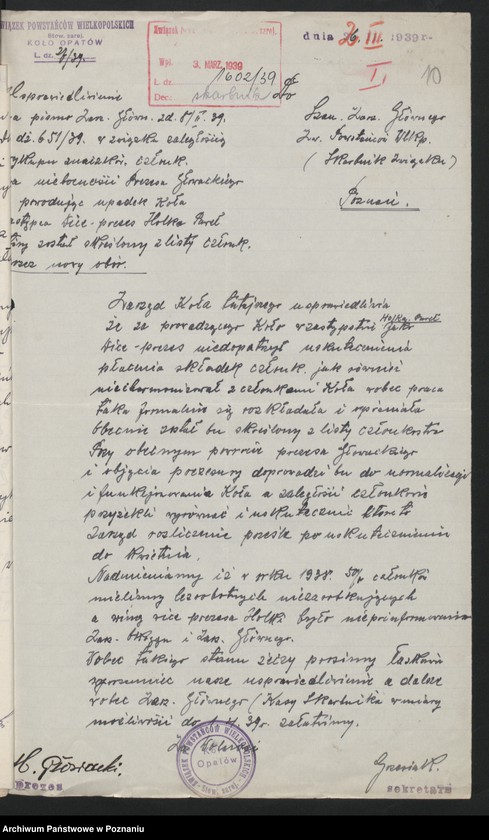 WIĄZEK POWSTAŃCÓW WIELKOPOLSKICH
Stow. zarej.
KOŁO OPATÓW
L. dz. /39.
Związek Powstańców
Wpł. 3. MARZ. 1939
L. dz. 1602/39
Dec: skarbnik
dnia 26. III. 1939 r-
10
Usprawiedliwienie
na pismo Zarz. Główn. z d. 39.
dz. 651/39. w związku zaległości
wykupu znaczków członk.
nieobecności Prezesa Głowackiego
powodując upadek Koła
zastępca Vice-prezes Holka Paweł
który został skreślony z listy członk.
przez nowy
Szan. Zarz. Głównego
Zw. Powstańców Wlkp.
( Skarbnik Związku )
Poznań.
Zarząd Koła tutejszego usprawiedliwia
że za prowadzącego Koło w zastępstwie Holka Paweł jako
Vice-prezes niedopatrzył uskutecznienia
płacenia składek członk. jak również
nieharmonizował z członkami Koła wobec praca
taka formalnie się rozkładała i
Obecnie został on skreślony z listy członkostwa
Przy obecnym powrocie prezesa Głowackiego
i objęcia prezesury doprowadzi on do normalnego
i funkcjonowania Koła a zaległości członkowie
przyrzekli wyrównać i uskutecznić
Zarząd rozliczenie prześle po uskutecznieniu
do kwietnia.
Nadmieniamy iż w roku 1938. 50% członków
mieliśmy bezrobotnych niezarobkujących
a winą vice prezesa Holki było niepoinformowanie
Zarz. Okręgu i Zarz. Głównego.
Wobec takiego stanu rzeczy prosimy łaskawie
zrozumieć nasze usprawiedliwienie a dalsze
wobec Zarz. Głównego (Kasy Skarbnika w miarę
możliwości do 39r. załatwimy.
Za
ZWIĄZEK POWSTAŃCÓW WIELKOPOLSKICH
Koło
Opatów
Stow. zarej.
Głowacki.
prezes
Grzesiak.
sekretarz
Archiwum Państwowe w Poznaniu